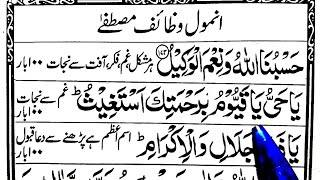 انمول وظائف مصطفےٰ
حَسْبُنَا اللهُ وَنِعْمَ الْوَكِيْل ﴿۱۷۳﴾ ہر مشکل، غم، فکر، آفت سے نجات ۱۰۰ بار
يَا حَیُّ يَا قَيُّوْمُ بِرَحْمَتِكَ اَسْتَغِيْثُ ط غم سے نجات ۱۰۰ بار
يَا جَلَالِ وَالْاِكْرَامِ ط اسم اعظم ہے پڑھنے سے دعا قبول ۱۰۰ بار